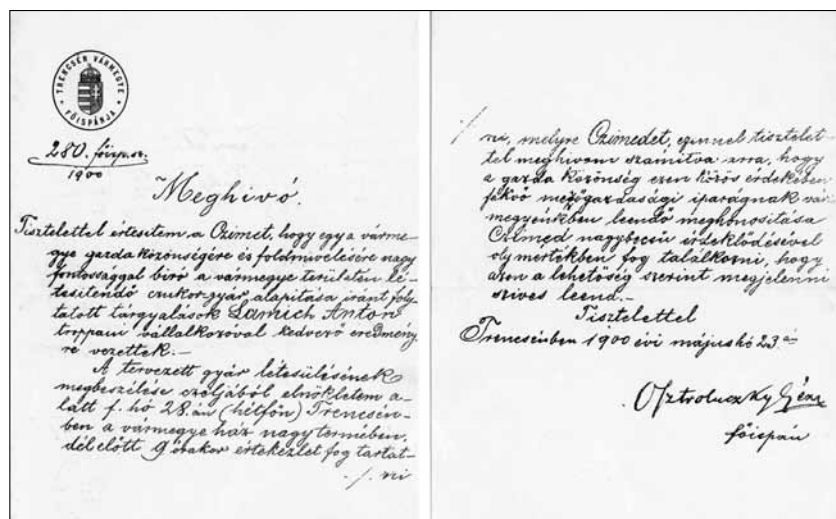 TRENCSÉN VÁRMEGYE FŐISPÁNJA
280. főisp.sz.
1900
Meghívó.
Tisztelettel értesítem a Czimet, hogy egy a várme-
gye gazda közönségére és földmivelésére nagy
fontossággal biró a vármegye területén lé-
tesítendő czukor-gyár alapítása iránt foly-
tatott tárgyalások Lamich Anton
troppaui vállalkozóval kedvező eredmény-
re vezettek.—
A tervezett gyár létesülésének
megbeszélése czéljából elnökletem a-
latt f. hó 28.án (hétfőn) Trencsén-
ben a vármegye ház nagytermében,
délelőtt 9 órakor értekezlet fog tartat-
./. ni
./. ni, melyre Czimedet, ezennel tisztelet-
tel meghivom számitva arra, hogy
a gazda közönség ezen közös érdekében
fekvő mezőgazdasági iparágnak vár-
megyénkben leendő meghonosítása
Czimed nagybecsű érdeklődésével
oly mértékben fog találkozni, hogy
azon a lehetőség szerint megjelenni
szives leend.—
Tisztelettel
Trencsénben 1900 évi május hó 23.án
Osztroluczky Géza
főispán